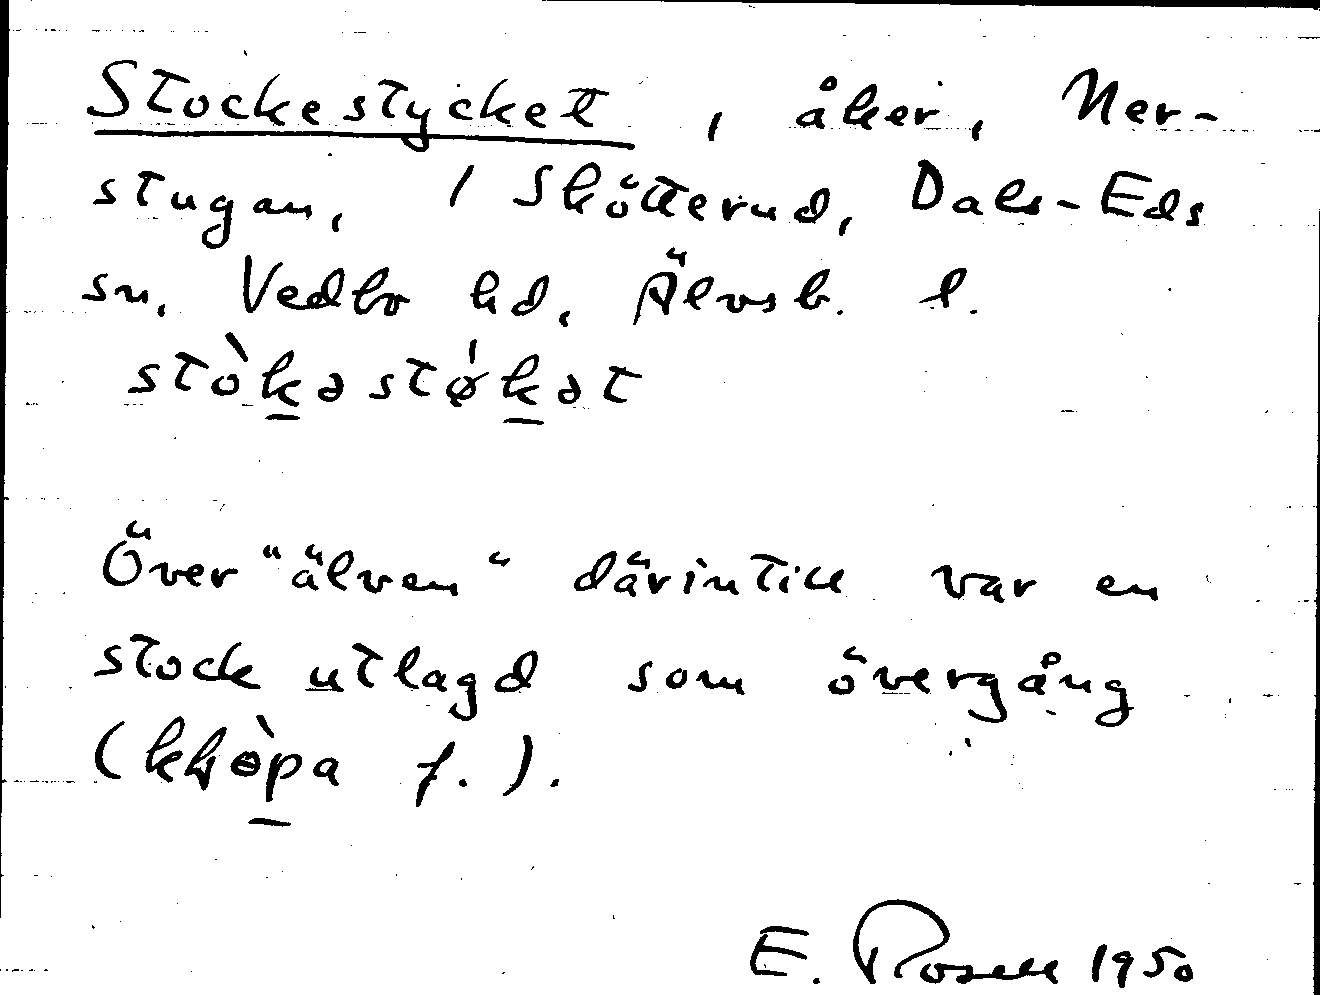 Stockestycket, åker, Ner-
stugan, 1 Skötterud, Dals-Eds
sn, Vedbo hd, Älvsb. l.
stòkəstǿkət
Över "älven" därintill var en
stock utlagd som övergång
( f.).
E. Rosell 1950